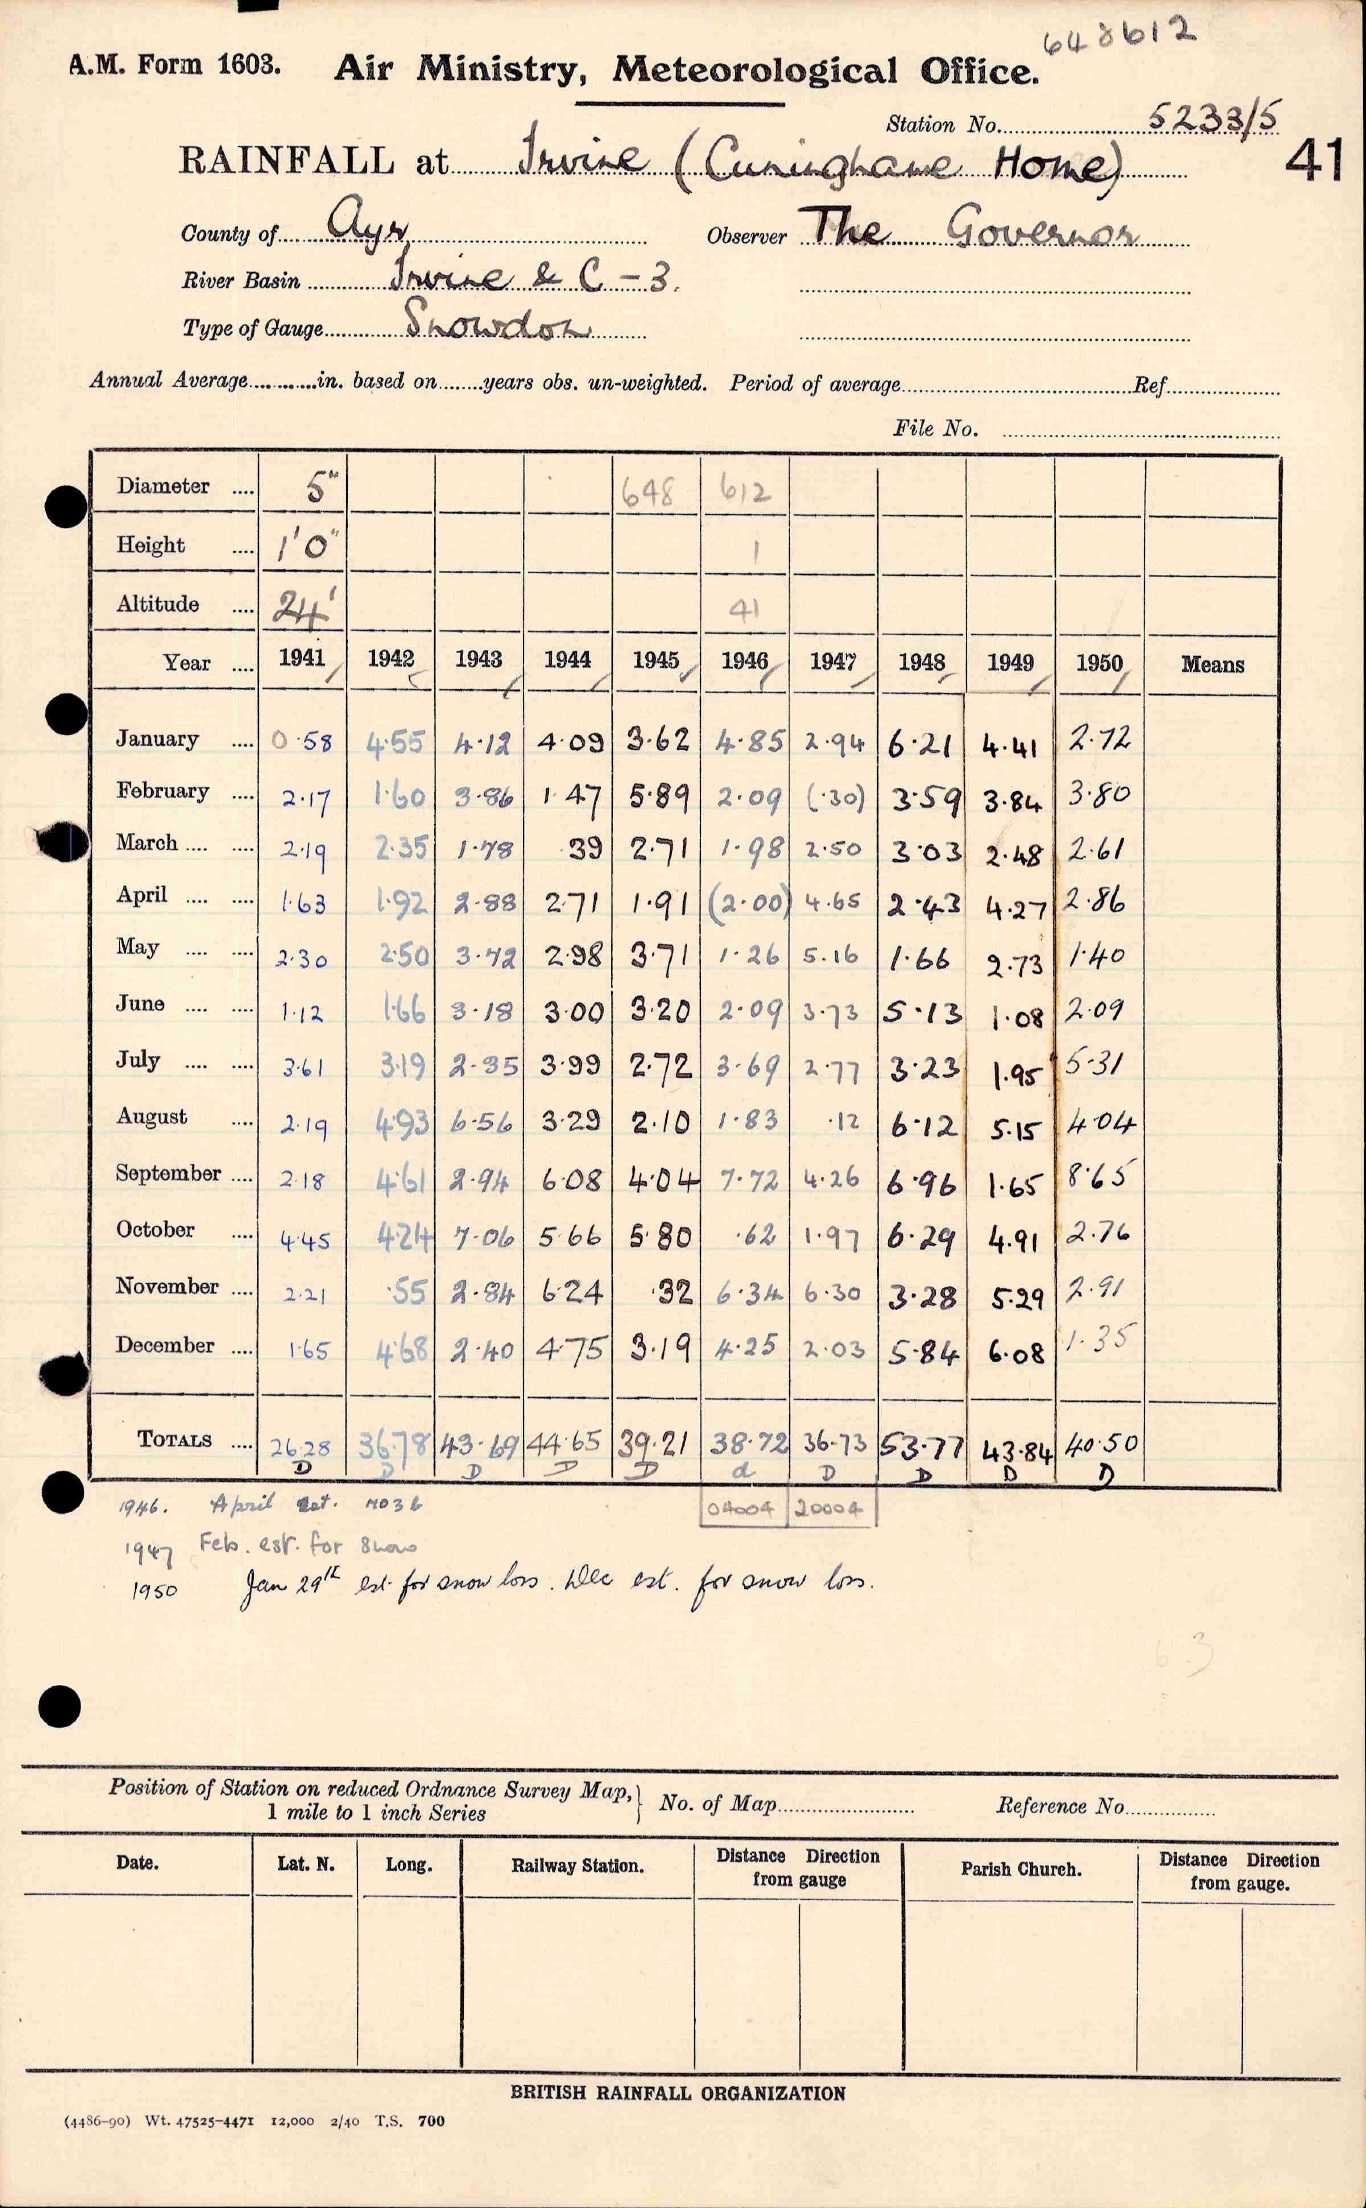 648612
A.M. Form 1603. Air Ministry, Meteorological Office.
Station No. 5233/5
RAINFALL at Irvine (Cuninghame Home) 41
County of Ayr Observer The Governor
River Basin Irvine & C - 3.
Type of Gauge Snowdon
Annual Average in. based on years obs. un-weighted. Period of average Ref
File No.
Diameter 5" 648 612
Height 1'0" 1
Altitude 24' 41
Year 1941 1942 1943 1944 1945 1946 1947 1948 1949 1950 Means
January 0.58 4.55 4.12 4.09 3.62 4.85 2.94 6.21 4.41 2.72
February 2.17 1.60 3.86 1.47 5.89 2.09 (.30) 3.59 3.84 3.80
March 2.19 2.35 1.78 .39 2.71 1.98 2.50 3.03 2.48 2.61
April 1.63 1.92 2.88 2.71 1.91 (2.00) 4.65 2.43 4.27 2.86
May 2.30 2.50 3.72 2.98 3.71 1.26 5.16 1.66 2.73 1.40
June 1.12 1.66 3.18 3.00 3.20 2.09 3.73 5.13 1.08 2.09
July 3.61 3.19 2.35 3.99 2.72 3.69 2.77 3.23 1.95 5.31
August 2.19 4.93 6.56 3.29 2.10 1.83 .12 6.12 5.15 4.04
September 2.18 4.61 2.94 6.08 4.04 7.72 4.26 6.96 1.65 8.65
October 4.45 4.24 7.06 5.66 5.80 .62 1.97 6.29 4.91 2.76
November 2.21 .55 2.84 6.24 .32 6.34 6.30 3.28 5.29 2.91
December 1.65 4.68 2.40 4.75 3.19 4.25 2.03 5.84 6.08 1.35
TOTALS 26.28 36.78 43.69 44.65 39.21 38.72 36.73 53.77 43.84 40.50
D D D D D d D D D D
1946. April Est. MO3b 04004 20004
1947 Feb. est. for snow
1950 Jan 29th est for snow loss. Dec est. for snow loss.
Position of Station on reduced Ordnance Survey Map, 1 mile to 1 inch Series } No. of Map Reference No.
Date. Lat. N. Long. Railway Station. Distance Direction from gauge Parish Church. Distance Direction from gauge.
BRITISH RAINFALL ORGANIZATION
(4486-90) Wt. 47525-4471 12,000 2/40 T.S. 700